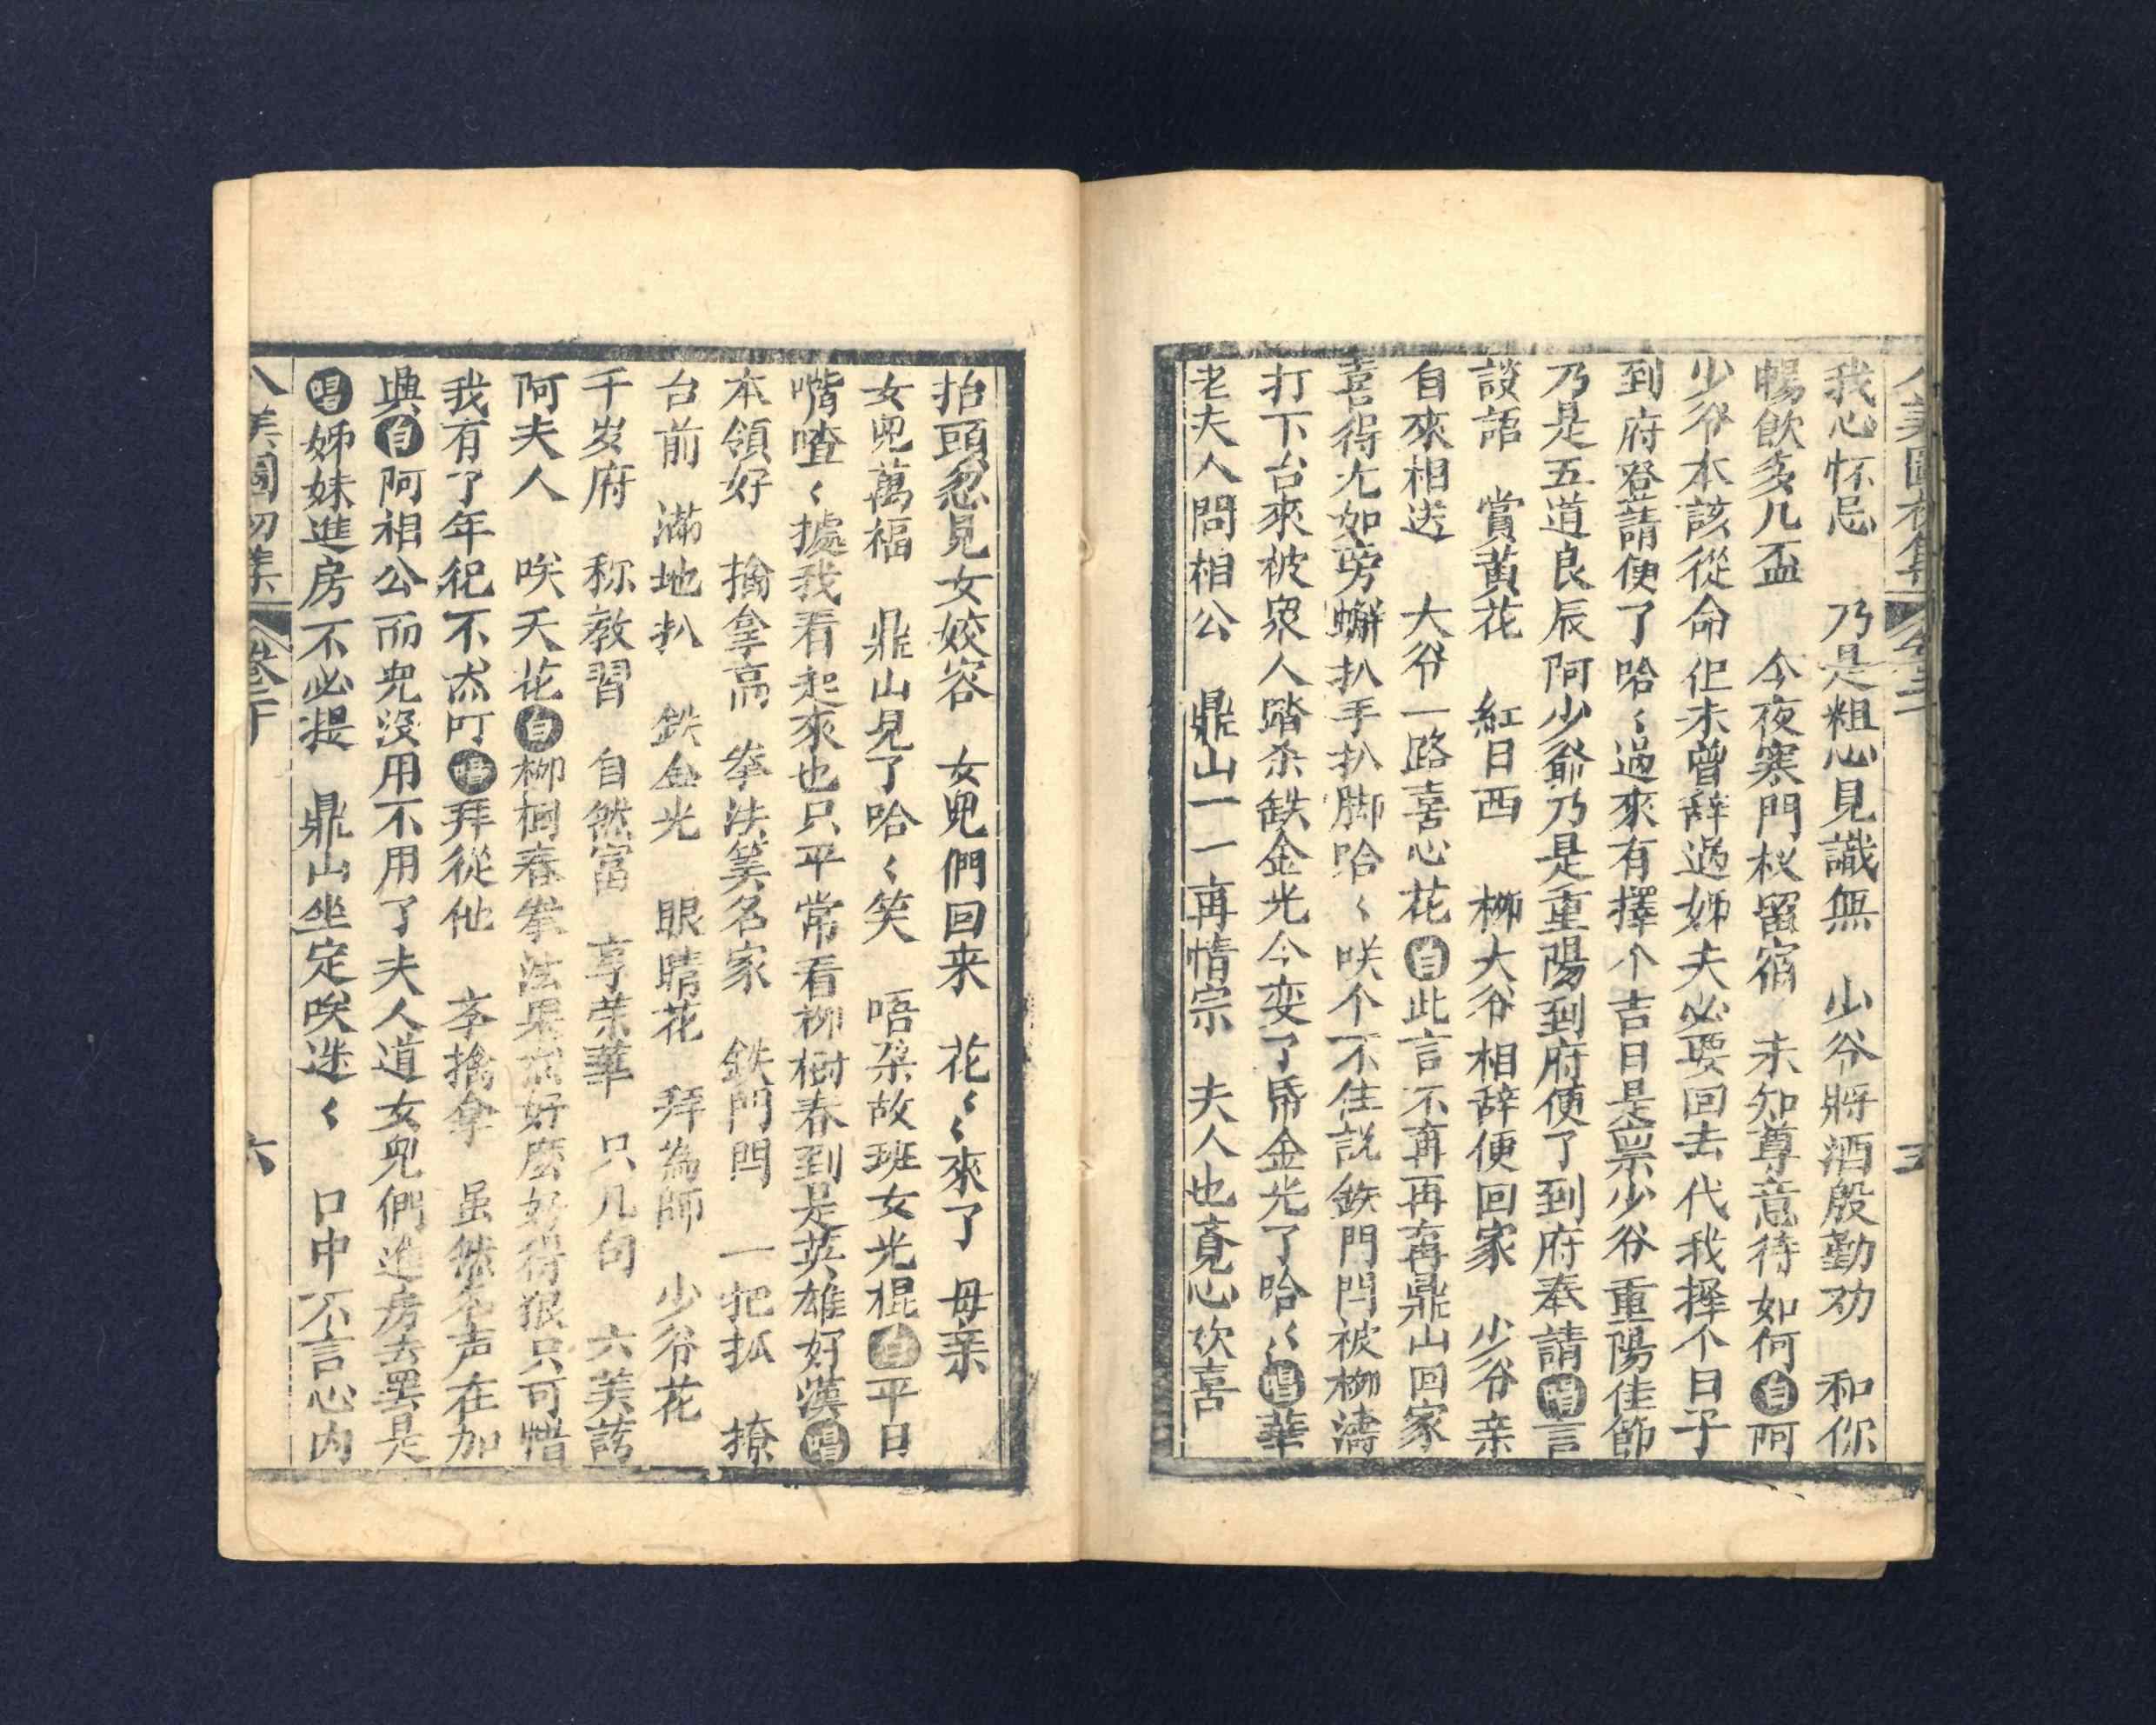 我心怀忌　乃是粗心見識無　少爷將酒殷勤劝　和你
暢飲多几盃　今夜寒門权留宿　未知尊意待如何白阿
少爷本該從命但未曾辞过姉夫必要回去代我擇个日子
到府登請便了哈〻過來有擇个吉日是禀少爷重陽佳節
乃是五道良辰阿少爺乃是重陽到府便了到府奉請唱言
談語　賞黃花　紅日西　柳大爷相辞便回家　少爷亲
自來相送　大爷一路喜心花白此言不再再再鼎山回家
喜得尤如旁蠏扒手扒脚哈〻咲个不住説鉄門閂被柳濤
打下台來被衆人踏杀鉄金光今变了昏金光了哈〻唱華
老夫人問相公　鼎山一一再情宗　夫人也覔心欢喜
抬頭忽見女姣容　女兒們回来　花〻來了　母亲
女兒萬福　鼎山見了哈〻笑　唔朵故班女光棍白平日
嘴喳〻據我看起來也只平常看柳樹春到是英雄好漢唱
本領好　擒拿高　拳法算名家　鉄門閂　一把抓　撩
台前　滿地扒　鉄金光　眼睛花　拜為師　少爷花
千岁府　称教習　自然富　享荣華　只几句　六美誇
阿夫人　咲天花白柳樹春拳法果然好麽好得狠只可惜
我有了年纪不然叮唱拜從他　李擒拿　虽然名声在加
興白阿相公而兒沒用不用了夫人道女兒們進房去罢是
唱姊妹進房不必提　鼎山坐定咲迷〻　口中不言心内
八美圖初集　卷二下　六